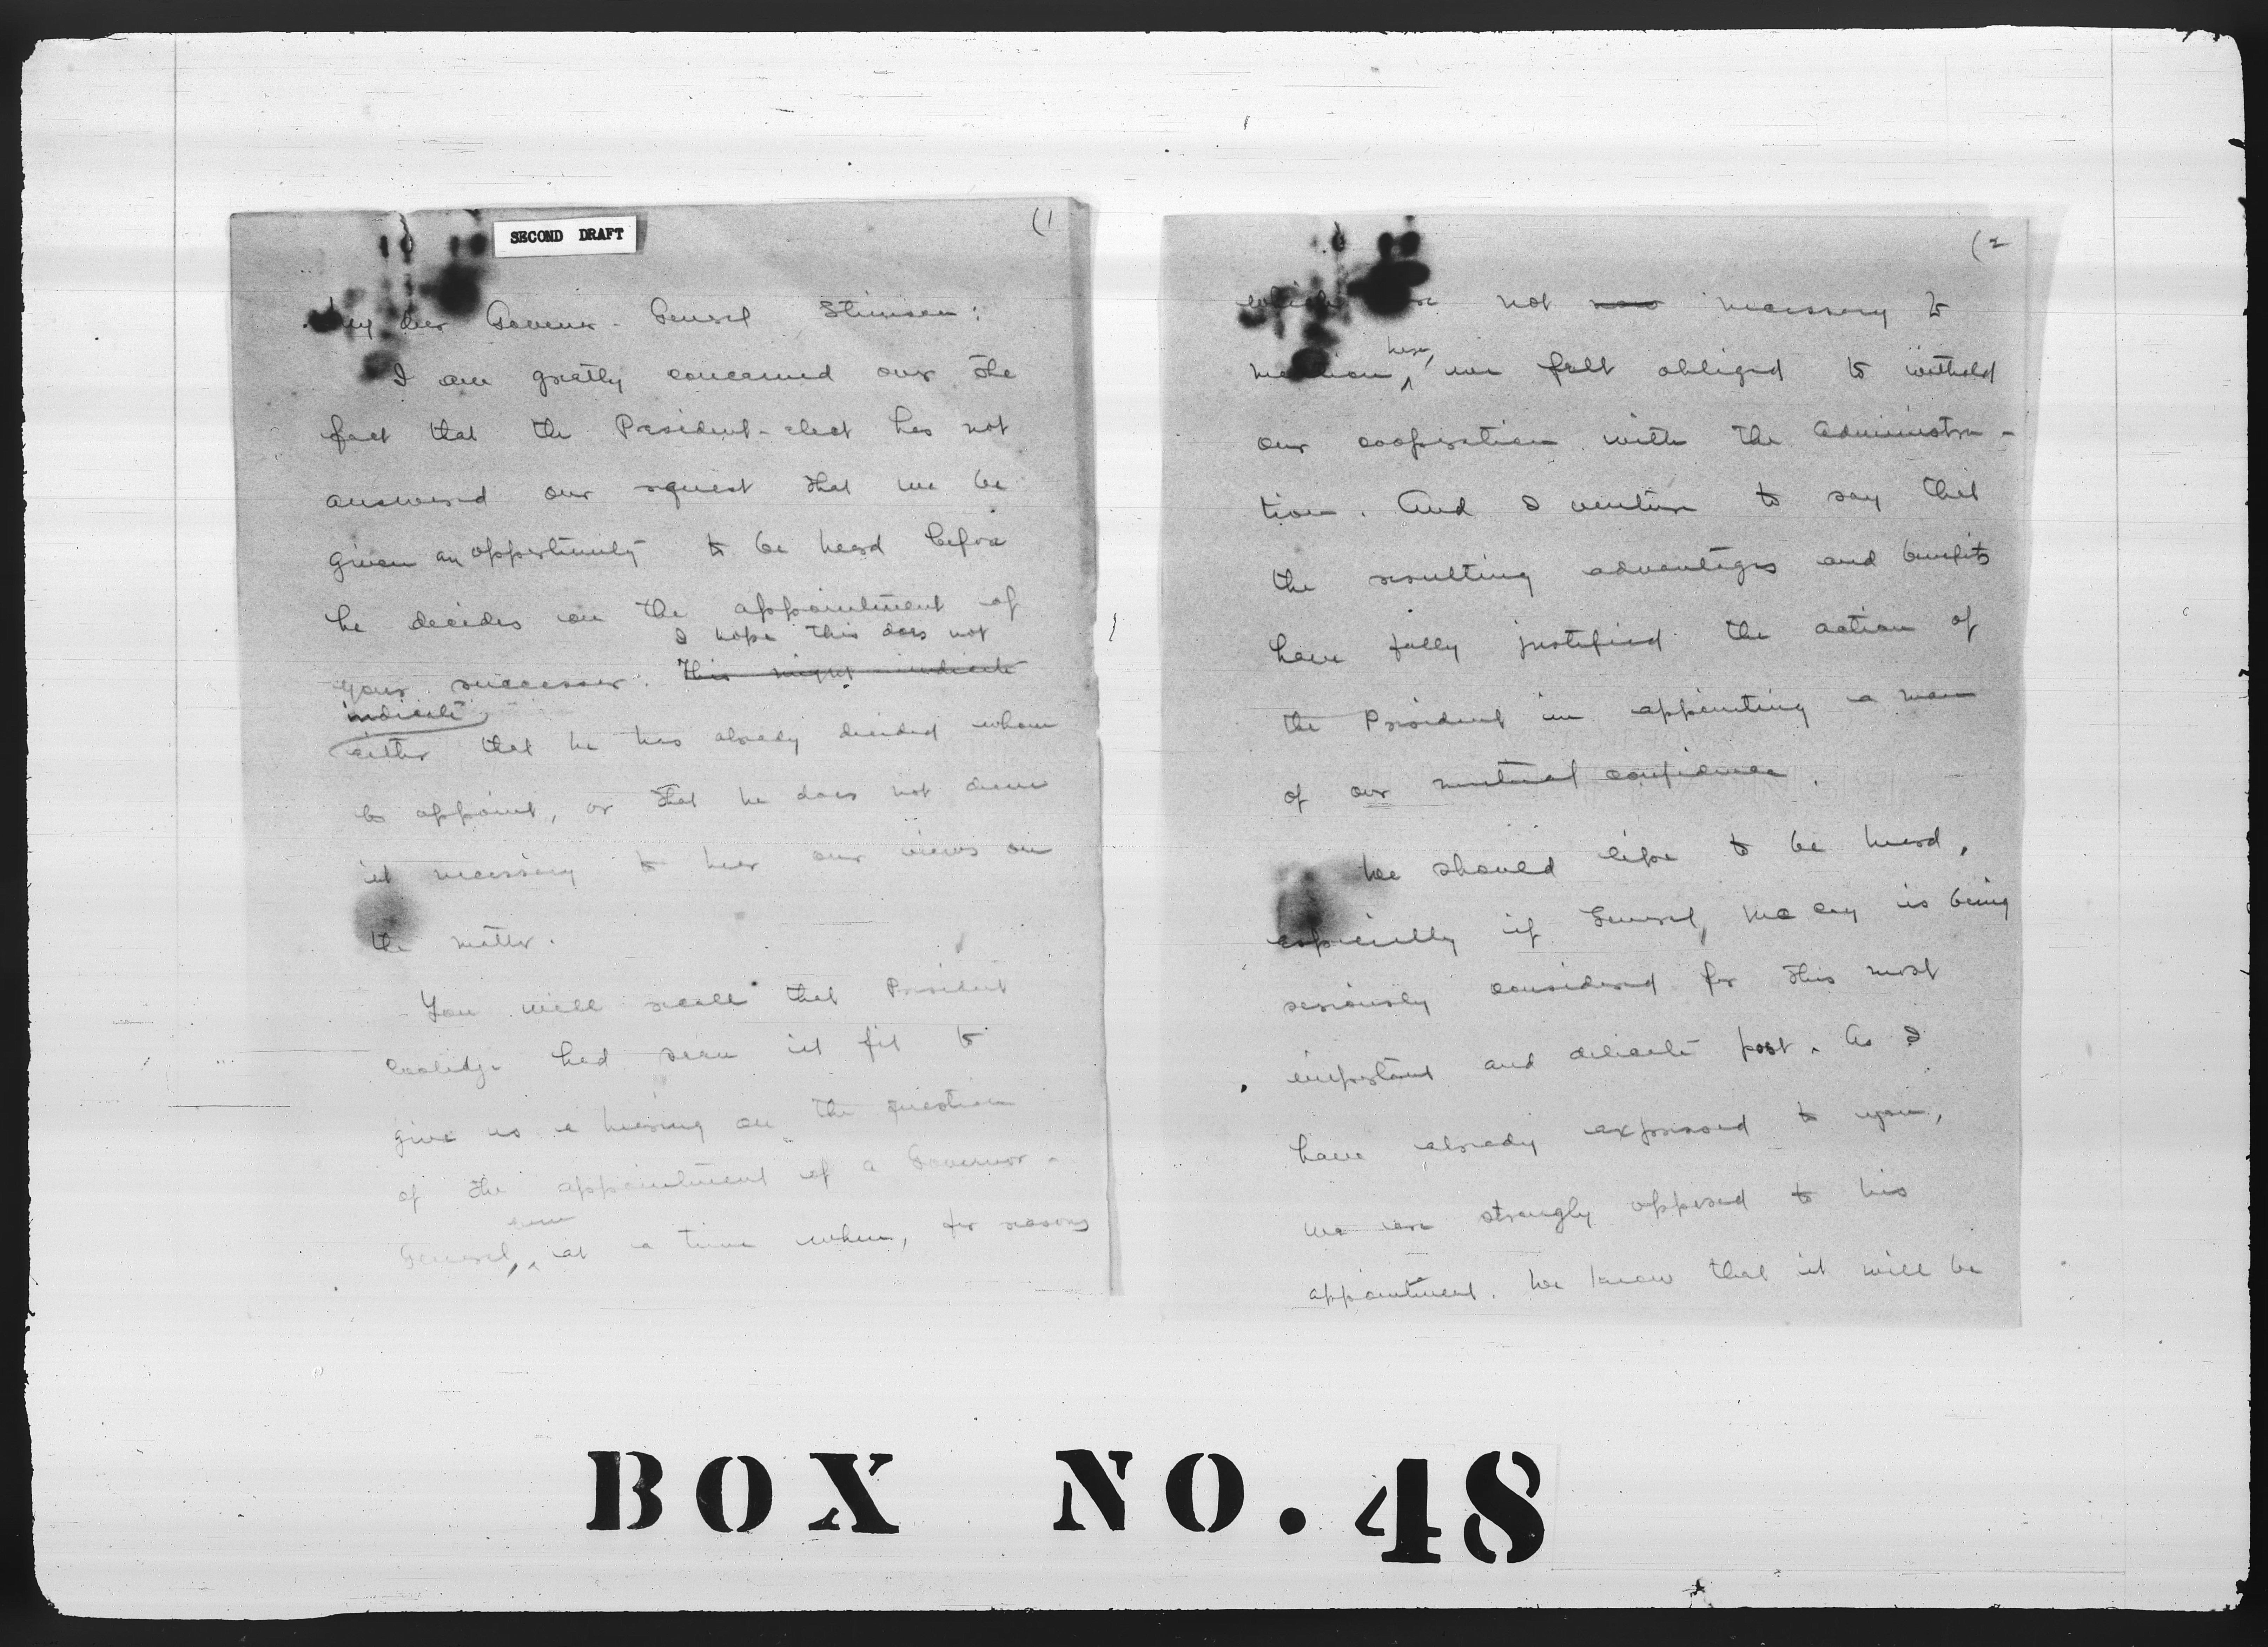 SECOND DRAFT
(1
My dear Governor-General Stimson:
I am greatly concerned over the
fact that the President-elect has not
answered our request that we be
given an opportunity to be heard before
he decides on the appointment of
I hope this does not
your successor. This might indicate
indicate
either that he has already decided whom
to appoint, or that he does not deem
it necessary to hear our views on
the matter.
You will recall that President
Coolidge had seen it fit to
give us a hearing on the question
of the appointment of a Governor-
General, at a time when, for reasons
(2
which are not necessary to
mention here, we felt obliged to withold
our cooperation with the administra-
tion. And I venture to say that
the resulting advantages and benefits
have fully justified the action of
the President in appointing a man
of our mutual confidence.
We should like to be heard,
especially if General McCoy is being
seriously considered for this most
important and delicate post. As I
have already expressed to you,
we are strongly opposed to his
appointment. We know that it will be
BOX NO. 48